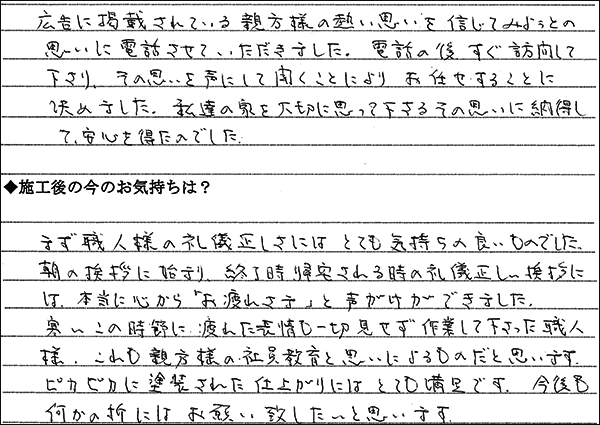 広告に掲載されている親方様の熱い思いを信じてみようとの
思いに電話させていただきました。電話の後すぐ訪問して
下さり、その思いを声にして聞くことにより お任せすることに
決めました。私達の家を大切に思って下さるその思いに納得し
て、安心を得たのでした。
◆施工後の今のお気持ちは？
まず職人様の礼儀正しさには とても気持ちの良いものでした。
朝の挨拶に始まり、終了時帰宅される時の礼儀正しい挨拶に
は、本当に心から「お疲れさま」と声がけができました。
寒いこの時節に、疲れた表情も一切見せず作業して下さった職人
様、これも親方様の社員教育と思いによるものだと思います。
ピカピカに塗装された仕上がりには とても満足です。今後も
何かの折には お願い致したいと思います。